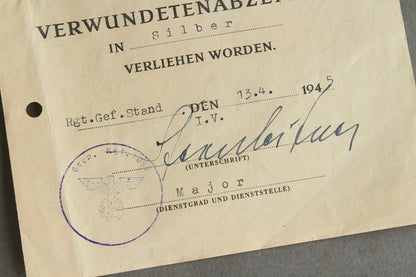 VERWUNDETENABZE
IN Silber
VERLIEHEN WORDEN.
Rgt.Gef.Stand DEN 13.4. 1945
I.V.
(UNTERSCHRIFT)
Major
(DIENSTGRAD UND DIENSTSTELLE)